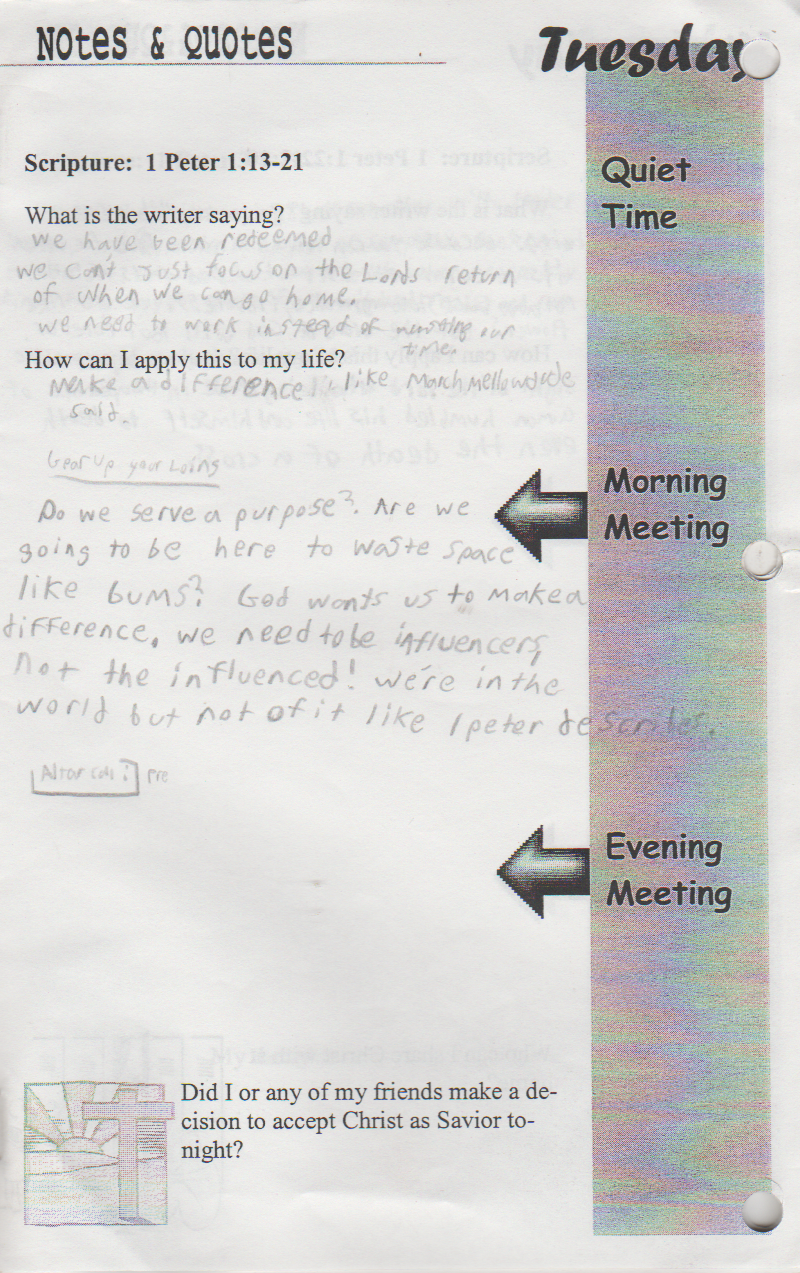 Notes & Quotes
Tuesday
Scripture: 1 Peter 1:13-21
Quiet
Time
What is the writer saying?
we have been redeemed
we can't just focus on the Lords return
of when we can go home.
we need to work instead of wasting our
time
How can I apply this to my life?
Make a difference, like Marchmellow dude
said.
Gear up your Loins
Morning
Meeting
Do we serve a purpose? Are we
going to be here to waste space
like bums? God wants us to make a
difference, we need to be influencers,
Not the influenced! we're in the
world but not of it like 1 peter describes.
Altar call? Pre
Evening
Meeting
Did I or any of my friends make a de-
cision to accept Christ as Savior to-
night?